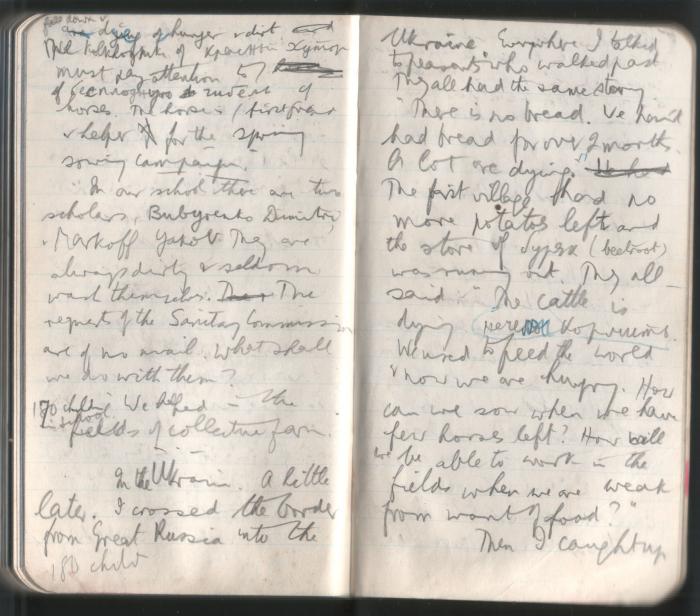 fall down &
are dying of hunger & dirt and
The Kolkhozniks of
must pay attention to /
of
horses. The horse is / first friend
& helper for the spring
sowing campaign."
In our school there are two
scholars, Bubyrenko Dimitri,
& Markoff Yakob. They are
always dirty & seldom
wash themselves. The
requests of the Sanitary Commission
are of no avail. What shall
we do with them?
180 children in school We helped in the
fields of collective farm.
In the Ukraine. A little
later. I crossed the border
from Great Russia into the
180 child
Ukraine. Everywhere I talked
to peasants who walked past
They all had the same story
"There is no bread. We haven't
had bread for over 2 months.
A lot are dying."
The first village had no
more potatoes left and
the store of (beetroot)
was running out. They all
said "The cattle is
dying
We used to feed the world
& now we are hungry. How
can we sow when we have
few horses left? How will
we be able to work in the
fields when we are weak
from want of food?"
Then I caught up